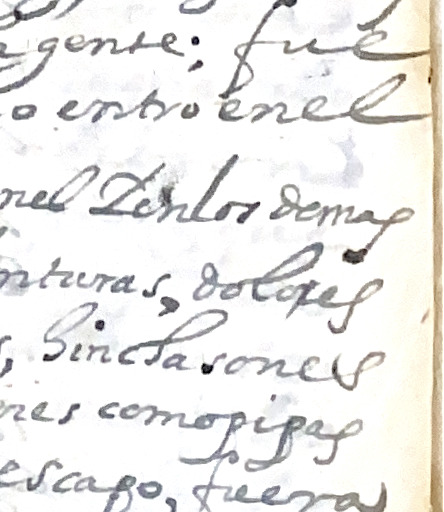 gente; fue
o entro enel
nel Ÿenlos demas
nturas, dolores
s, hinchasones
ores comopipas
escapo, fueras